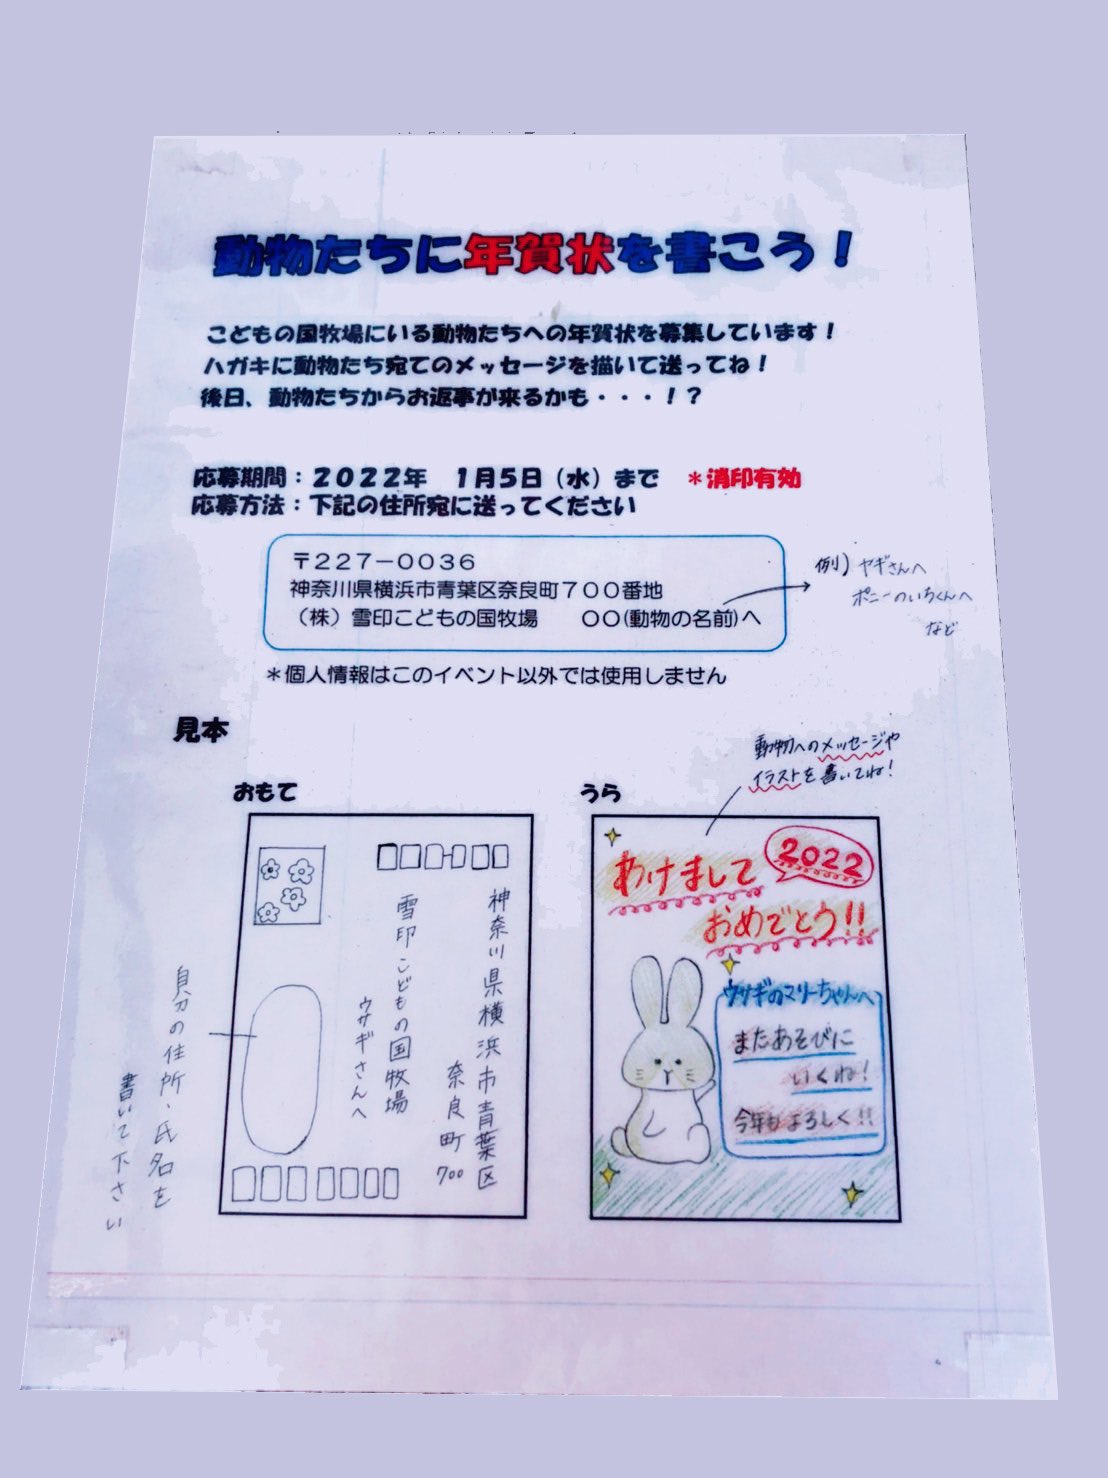 動物たちに年賀状を書こう！
こどもの国牧場にいる動物たちへの年賀状を募集しています！
ハガキに動物たち宛てのメッセージを描いて送ってね！
後日、動物たちからお返事が来るかも・・・！？
応募期間：２０２２年　１月５日（水）まで　＊消印有効
応募方法：下記の住所宛に送ってください
〒２２７－００３６
神奈川県横浜市青葉区奈良町７００番地
（株）雪印こどもの国牧場　　〇〇(動物の名前)へ
例）ヤギさんへ
ポニーのいちくんへ
など
＊個人情報はこのイベント以外では使用しません
見本
動物へのメッセージや
イラストを書いてね！
おもて
神奈川県横浜市青葉区
奈良町700
雪印こどもの国牧場
ウサギさんへ
自分の住所・氏名を
書いて下さい
うら
あけまして
2022
おめでとう!!
ウサギのマリーちゃんへ
またあそびに
いくね！
今年もよろしく!!